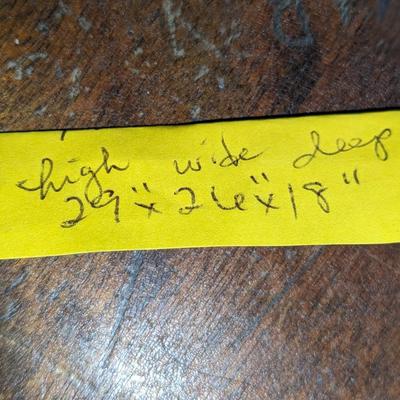 high wide deep
29" x 26" x 18"